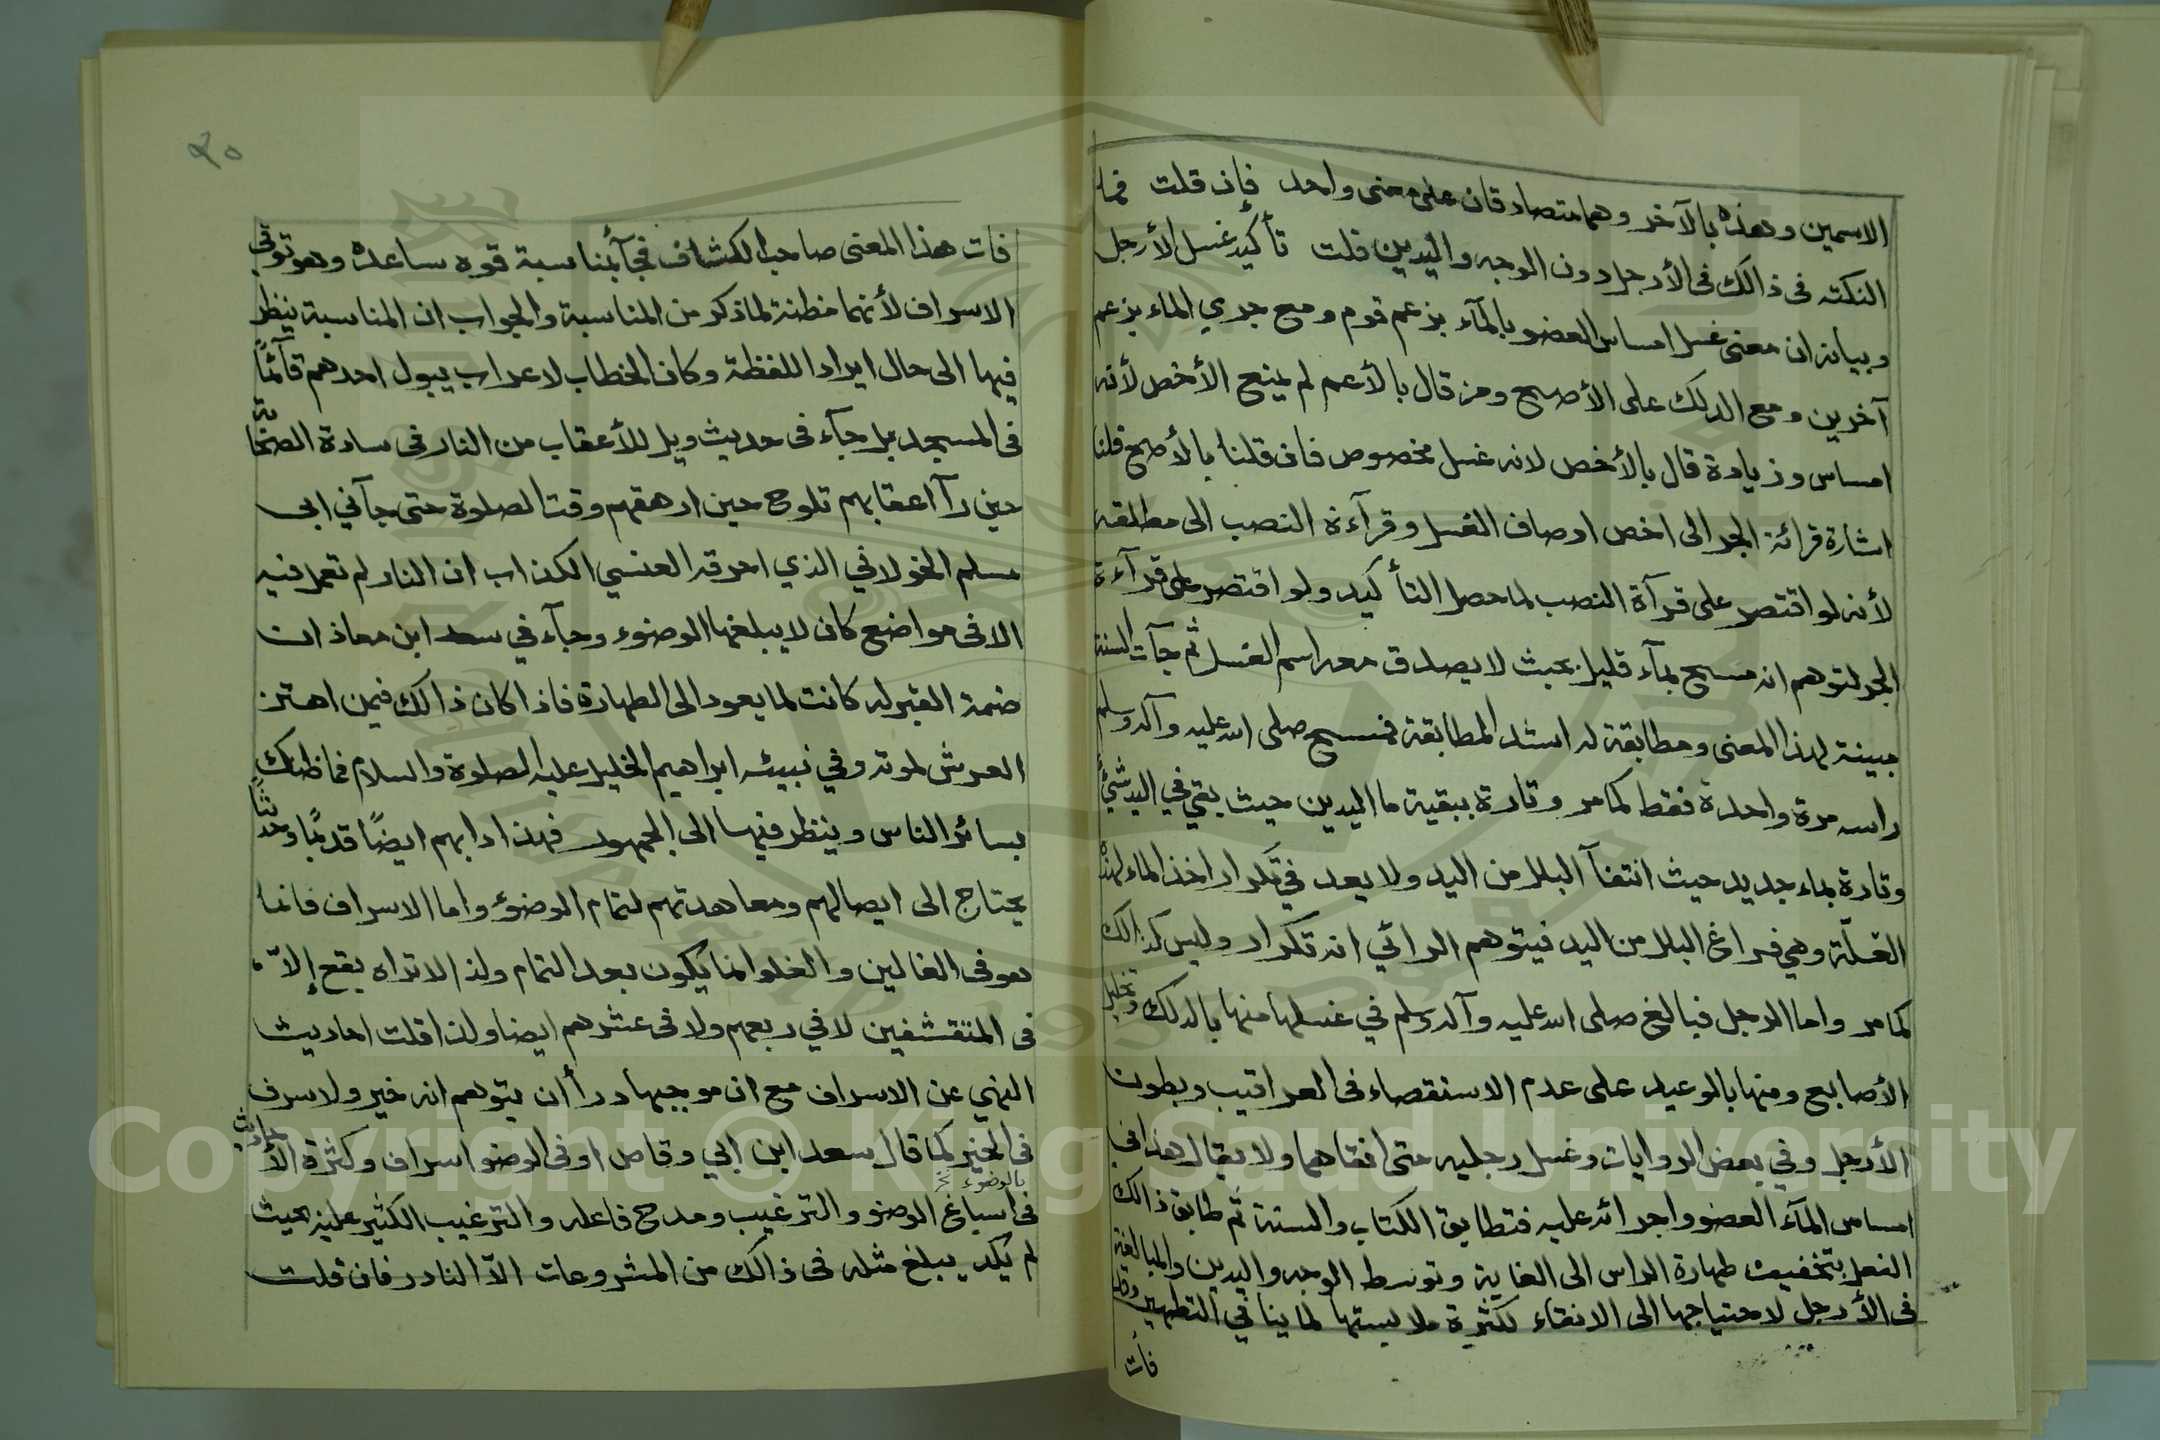 الاسمين وهذه بالآخر وهما متصادقان على معنى واحد فإن قلت فما
النكته فى ذالك فى الأرجل دون الوجه واليدين قلت تأكيد غسل الأرجل
وبيانه ان معنى غسل امساس العضو بالمآء بزعم قوم ومع جري الماء بزعم
آخرين ومع الدلك على الأصح ومن قال بالأعم لم يمنع الأخص لأنه
امساس وزيادة قال بالأخص لانه غسل مخصوص فان قلنا بالأصح قلنا
اشارة قرائة الجر الى اخص اوصاف الغسل وقرآءة النصب الى مطلقه
لأنه لو اقتصر على قرآة النصب لما حصل التأكيد ولو اقتصر على قرآءة
الجر لتوهم انه مسح بمآء قليل بحيث لا يصدق معه اسم الغسل ثم جآت السنة
مبينة لهذا المعنى ومطابقة له اشد المطابقة فمسح صلى الله عليه وآله وسلم
راسه مرة واحدة فقط كما مر وتارة ببقية ما اليدين حيث بقي في اليد شيء
وتارة بماء جديد حيث انتفآ البلل من اليد ولا يعد في تكرار اخذ الماء لهذه
العلّة وهي فراغ البلل من اليد فيتوهم الرائي انه تكرار وليس كذالك
كما مر واما الرجل فبالغ صلى الله عليه وآله وسلم في غسلها منها بالدلك وتخليل
الأصابع ومنها بالوعيد على عدم الاستقصاء فى العراقيب وبطون
الأرجل وفي بعض الروايات وغسل رجليه حتى انقاهما ولا يقال هذا في
امساس المآء العضو واجرائه عليه فتطابق الكتاب والسنة ثم طابق ذالك
الفعل بتخفيف طهارة الراس الى الغاية وتوسط الوجه واليدين والمبالغة
فى الأرجل لاحتياجها الى الانقاء لكثرة ملابستها لما ينافي التطهير وقد
فات
٢٠
فات هذا المعنى صاحب الكشاف فجآ بمناسبة قوه ساعده وهو توقي
الاسراف لأنهما مظنة لما ذكر من المناسبة والجواب ان المناسبة ينظر
فيها الى حال ايراد اللفظة وكان الخطاب لاعراب يبول احدهم قآئماً
فى المسجد بل جآء فى حديث ويل للأعقاب من النار فى سادة الصحابة
حين رآ اعقابهم تلوح حين ارهقهم وقت الصلوة حتى جآ في ابى
مسلم الخولاني الذي احرقه العنسي الكذاب ان النار لم تعمل فيه
الا فى مواضع كان لا يبلغها الوضوء وجآء في سعد ابن معاذ ان
ضمة القبر له كانت لما يعود الى الطهارة فاذا كان ذالك فيمن اهتز
العرش لموته وفي نبيئه ابراهيم الخليل عليه الصلوة والسلام فما ظنك
بسائر الناس وينظر فيها الى الجمهور فهذا دابهم ايضًا قديمًا وحديثاً
يحتاج الى ايصالهم ومعاهدتهم لتمام الوضوء واما الاسراف فانما
هو فى الغالين والغلو انما يكون بعد التمام ولذا لا تراه يقع إلاّ
فى المتقشفين لا في ربعهم ولا فى عشرهم ايضا ولذا قلت احاديث
النهي عن الاسراف مع ان موجبها درأ ان يتوهم انه خير ولا سرف
فى الخير كما قال سعد ابن ابي وقاص اوفى الوضو اسراف وكثرة الأحاديث
بالوضوء نخ
فى اسباغ الوضو والترغيب ومدح فاعله والترغيب الكثير عليه بحيث
لم يكد يبلغ مثله فى ذالك من المشروعات الاّ النادر فان قلت
Copyright © King Saud University